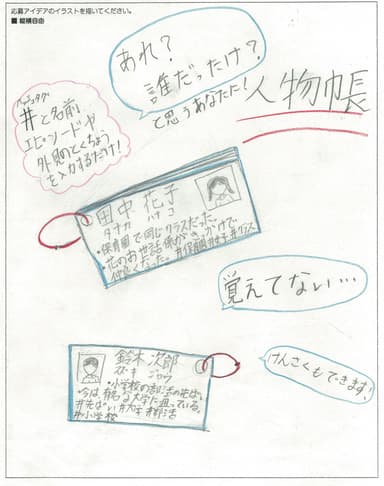 応募アイデアのイラストを描いてください。
■ 縦横自由
あれ?
誰だったけ?
と思うあなたに!
人物帳
ハッシュタグ
#と名前
エピソードや
外見のとくちょう
を入力するだけ!
田中 花子
タナカ ハナコ
・保育園で同じクラスだった。
・花のお世話係がきっかけで、
仲良くなった。#保育園#女子#クラス
覚えてない…
鈴木 次郎
スズキ ジロウ
・小学校の部活の先ぱい。
・今は有名な大学に通っている。
#先ぱい#大学#部活
#小学校
けんさくもできます!